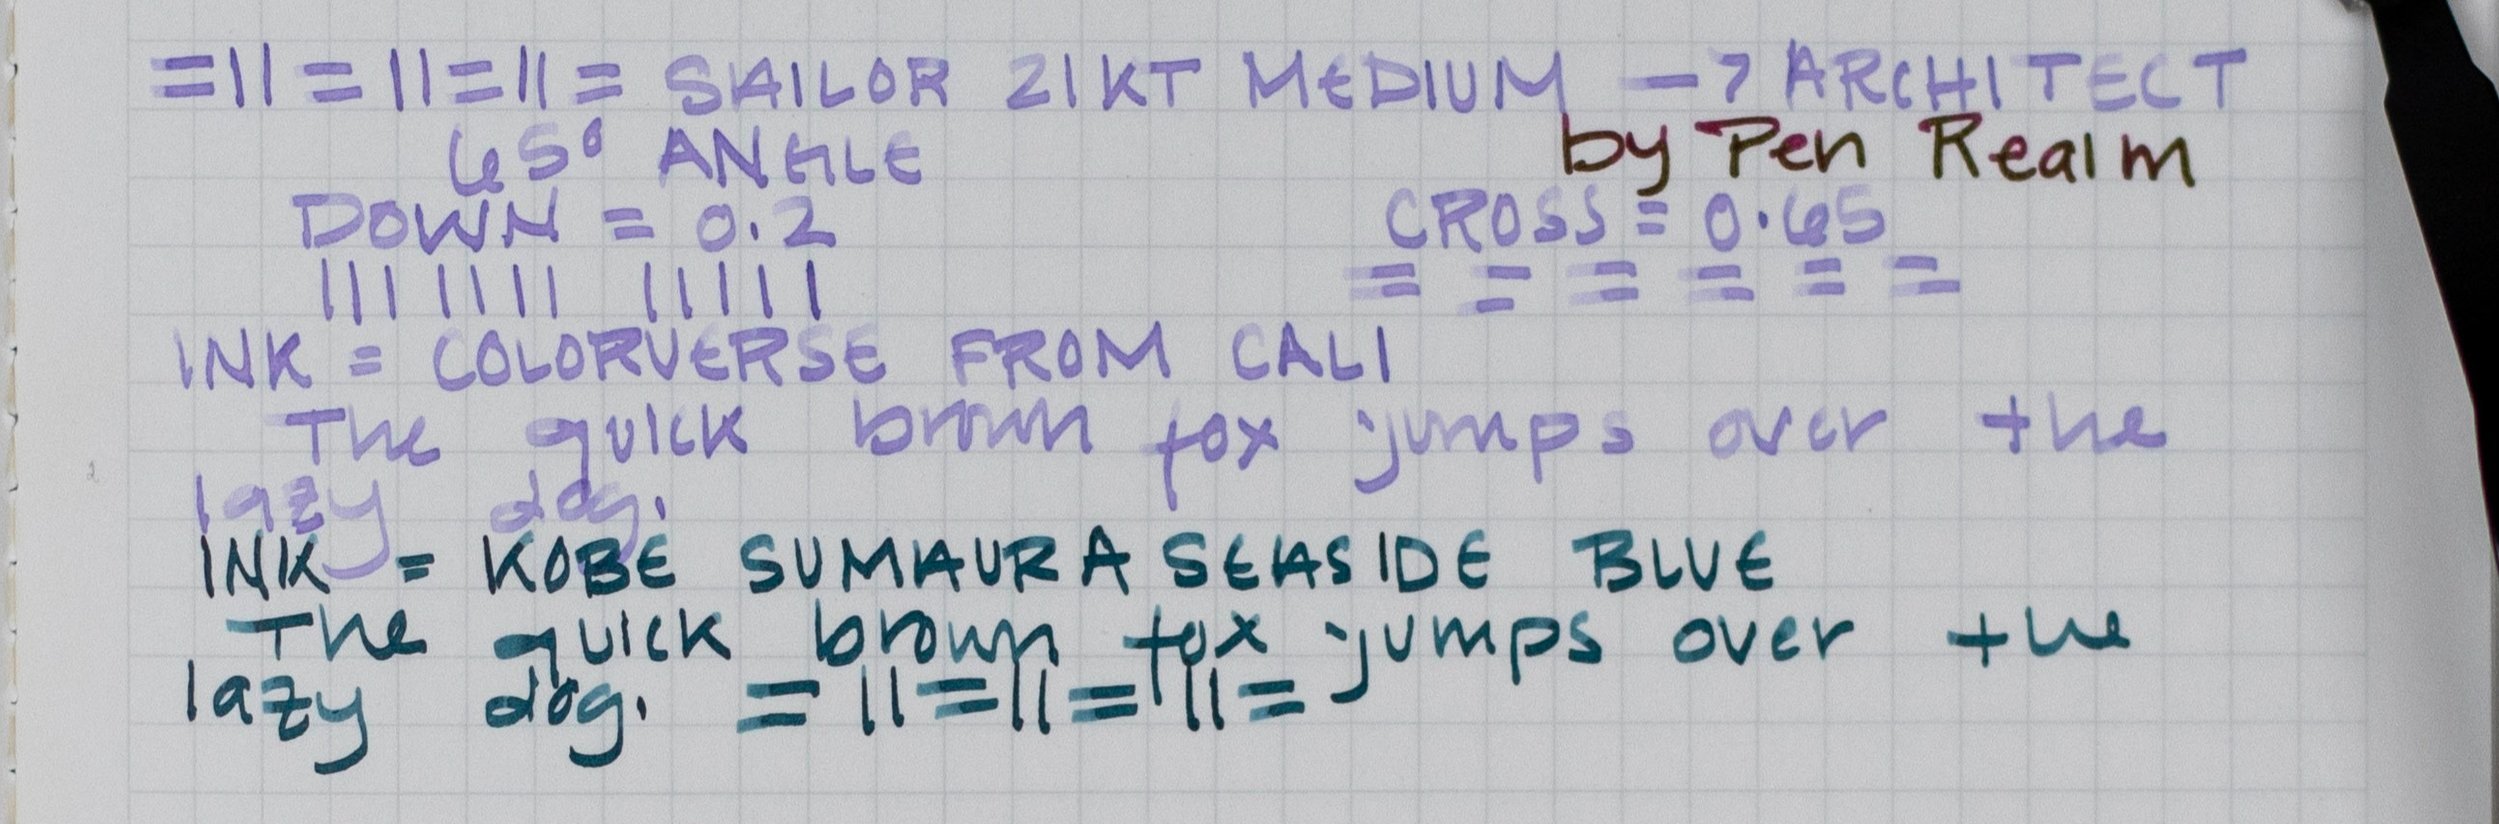 =11=11=11= SAILOR 21KT MEDIUM → ARCHITECT
65° ANGLE by Pen Realm
DOWN = 0.2 CROSS = 0.65
||| |||| ||||| = = = = = =
INK = COLORVERSE FROM CALI
The quick brown fox jumps over the
lazy dog.
INK = KOBE SUMAURA SEASIDE BLUE
The quick brown fox jumps over the
lazy dog. =11=11=11=